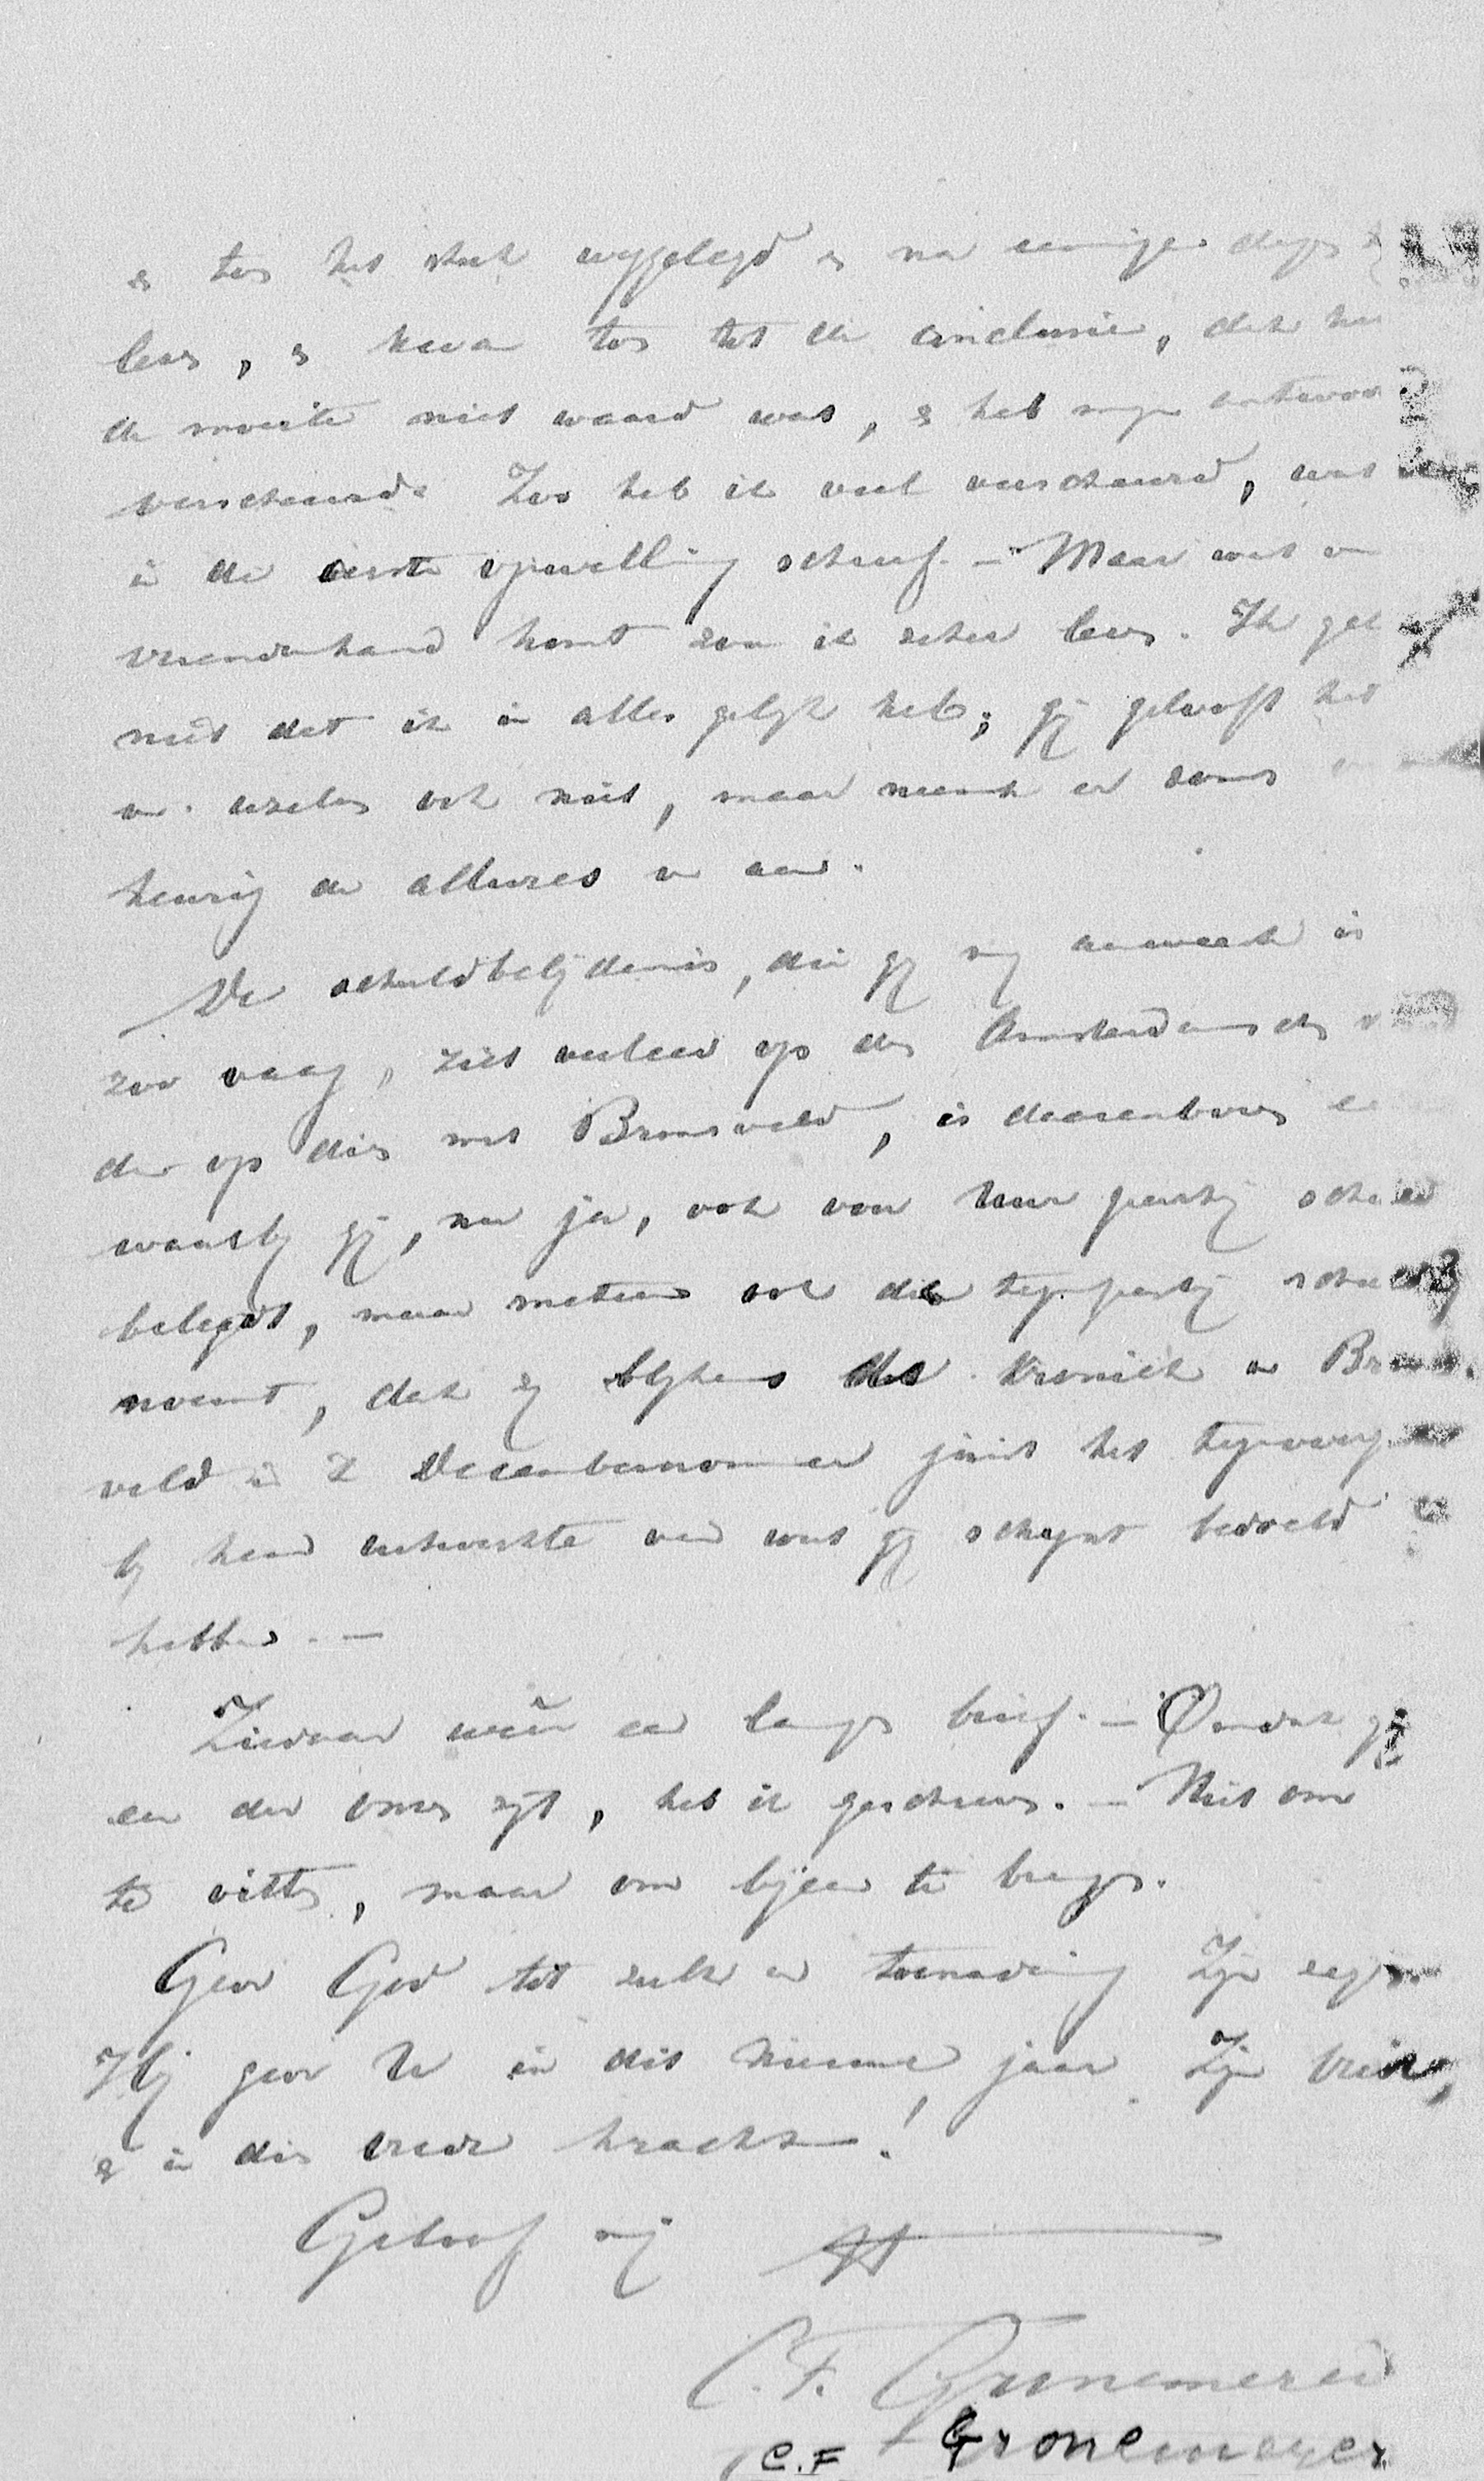 & toen het stuk weggelegd & na eenige dagen
lezen, & kwam toen tot de conclusie, dat het
de moeite niet waard was, & heb mijn antwoord
verscheurd. Zoo heb ik veel verscheurd, wat
in de eerste opwelling schreef. — Maar wat van
vriendenhand komt zou ik zeker lezen. Ik gel
niet dat ik in alles gelijk heb; gij gelooft het
ook niet, maar neemt er soms
keurig de allures van aan.
De schuldbelijdenis, die gij mij aanwreef is
zoo vaag, ziet veeleer op den Amsterdamschen
dan op dien met Bronsveld, is daarenboven
waarbij gij, nu ja, ook van Uwe partij schuld
belegdt, maar meteen ook de tegenpartij schuldig
noemt, dat zij blijkens de Kroniek van Brons-
veld in 't Decembernommer juist het tegenovergestelde
bij hem uitwerkte van wat gij schijnt bedoeld te
hebben. —
Ziedaar weêr een lange brief. — Omdat gij
een der onzen zijt, heb ik geschreven. — Niet om
te vitten, maar om bijeen te brengen.
Geve God tot zulk een toenadering Zijn zegen.
Hij geve U in dit nieuwe jaar Zijn vrede,
& in dien vrede kracht!
Geloof mij
C. F. Gronemeyer
C.F Gronemeyer